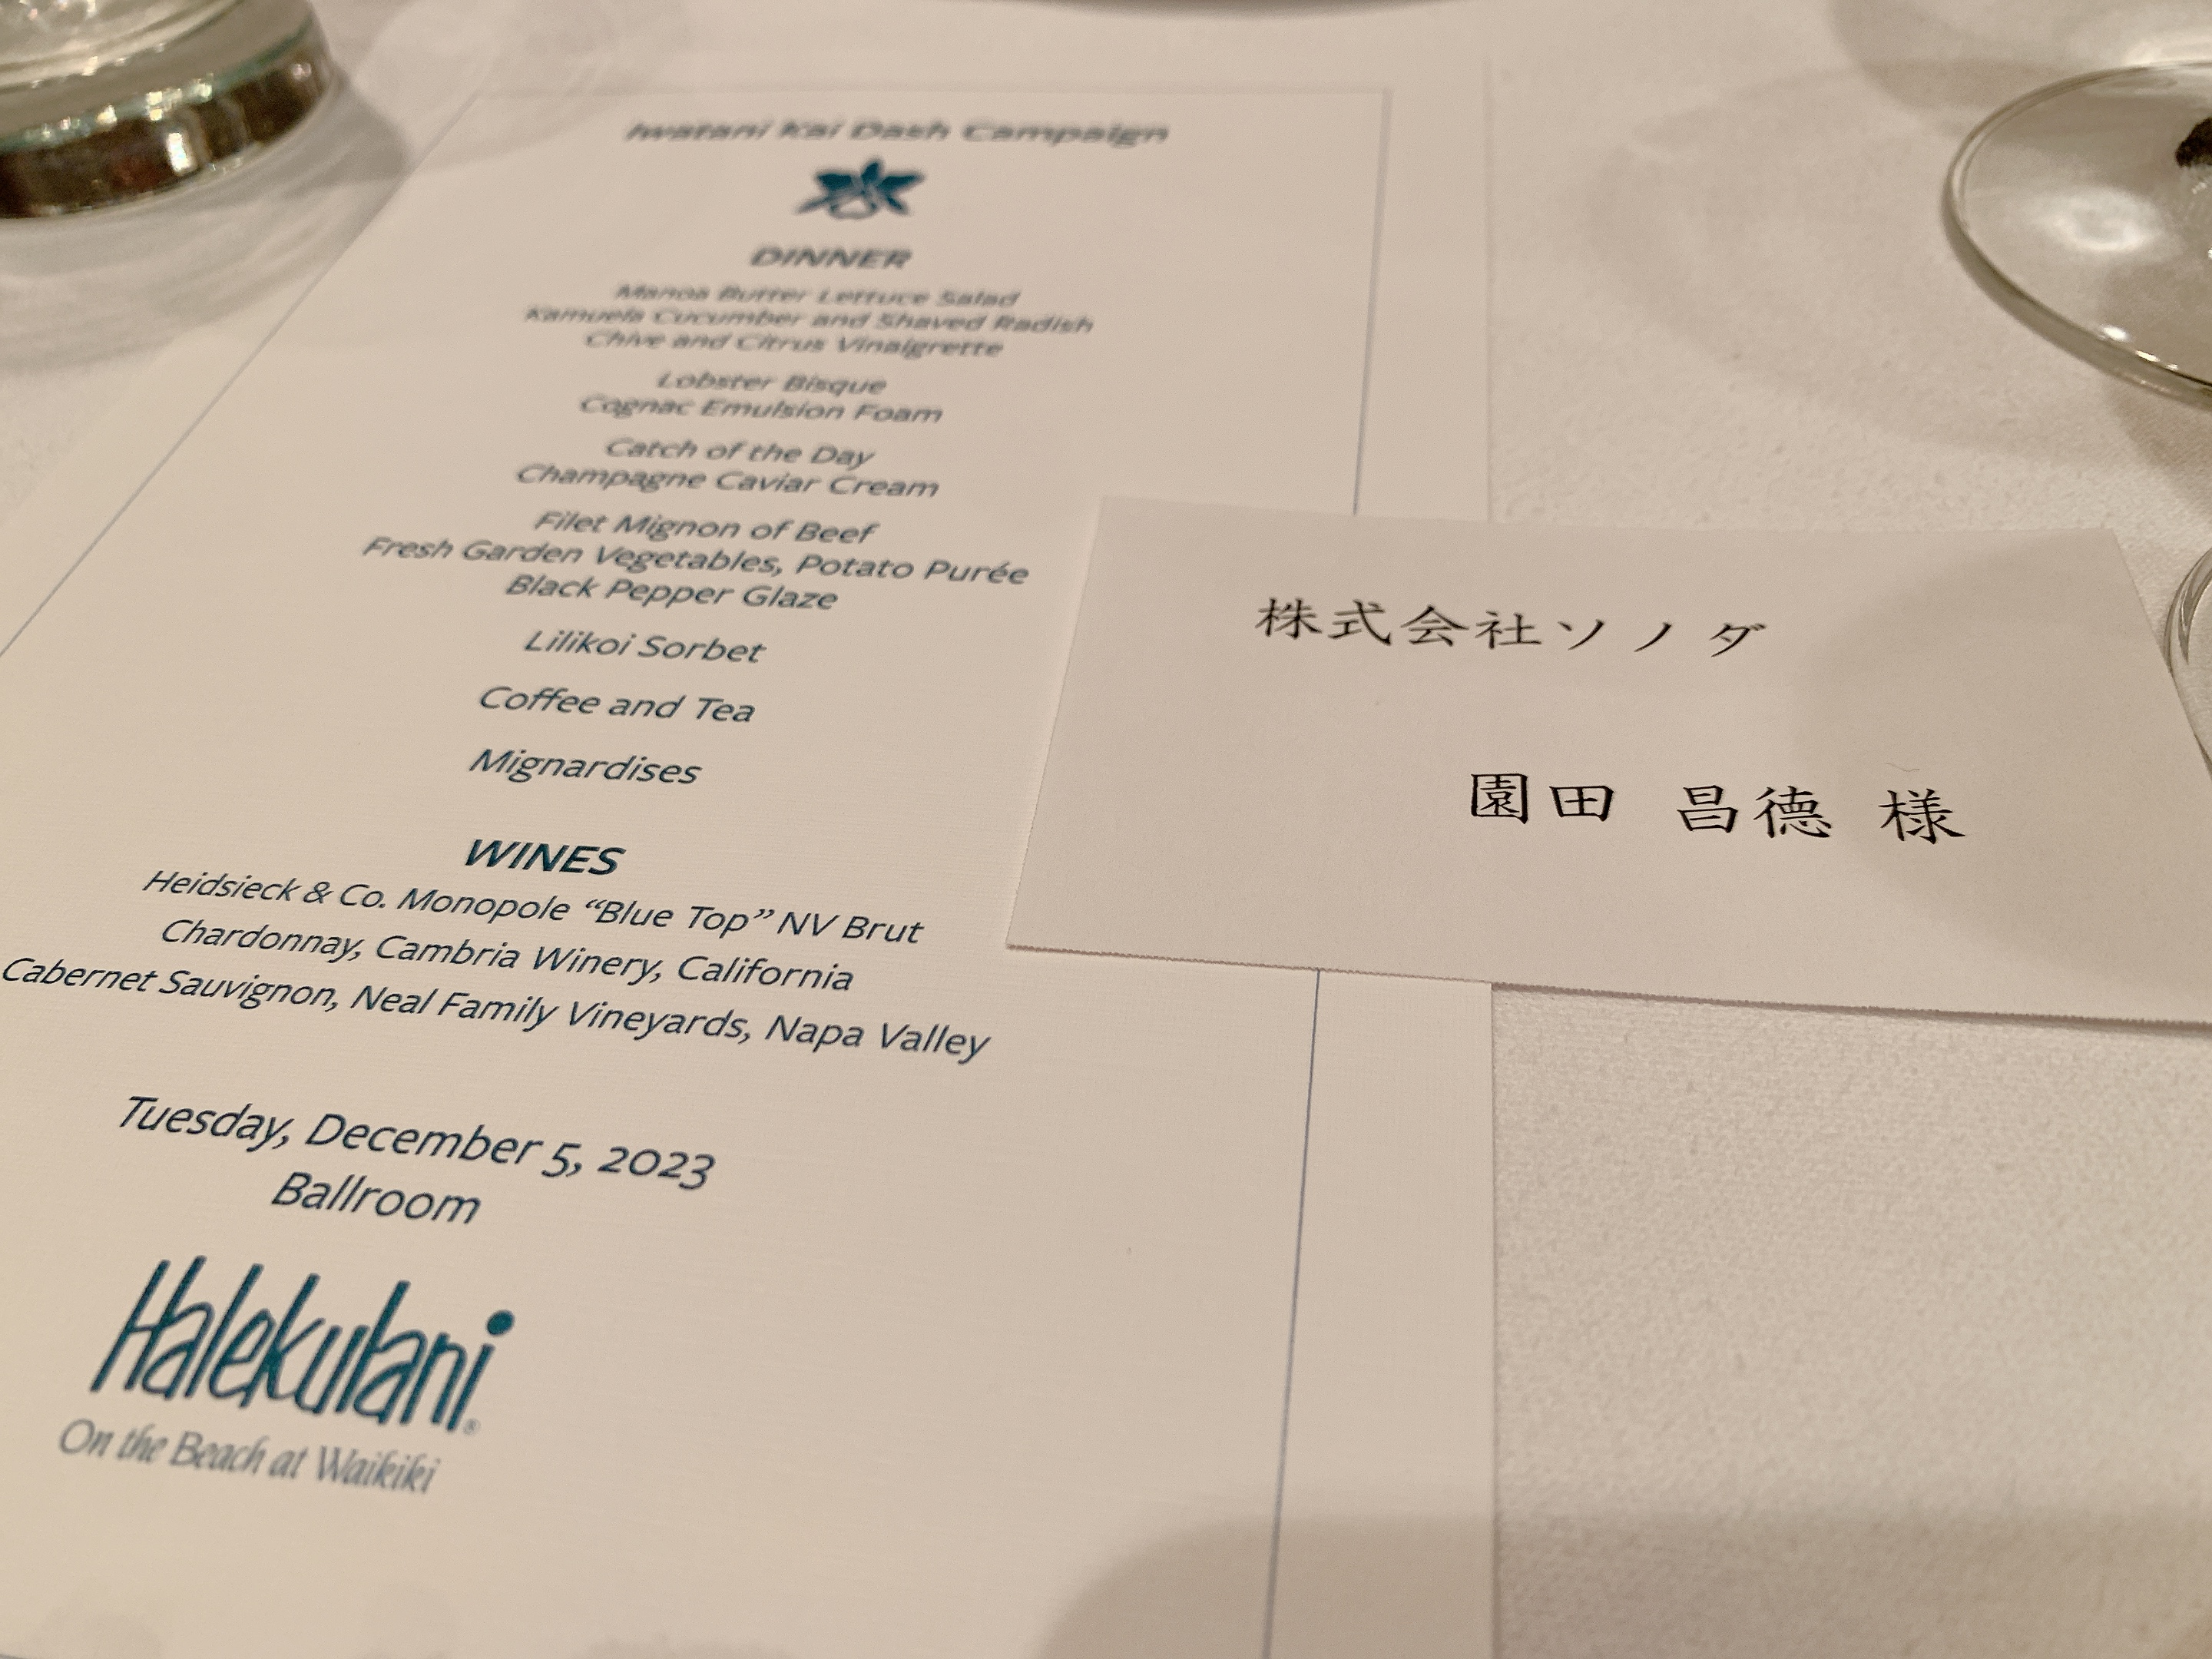 Iwatani Kai Dash Campaign
DINNER
Manoa Butter Lettuce Salad
Kamuela Cucumber and Shaved Radish
Chive and Citrus Vinaigrette
Lobster Bisque
Cognac Emulsion Foam
Catch of the Day
Champagne Caviar Cream
Filet Mignon of Beef
Fresh Garden Vegetables, Potato Purée
Black Pepper Glaze
Lilikoi Sorbet
Coffee and Tea
Mignardises
WINES
Heidsieck & Co. Monopole “Blue Top” NV Brut
Chardonnay, Cambria Winery, California
Cabernet Sauvignon, Neal Family Vineyards, Napa Valley
Tuesday, December 5, 2023
Ballroom
Halekulani®
On the Beach at Waikiki
株式会社ソノダ
園田 昌徳 様